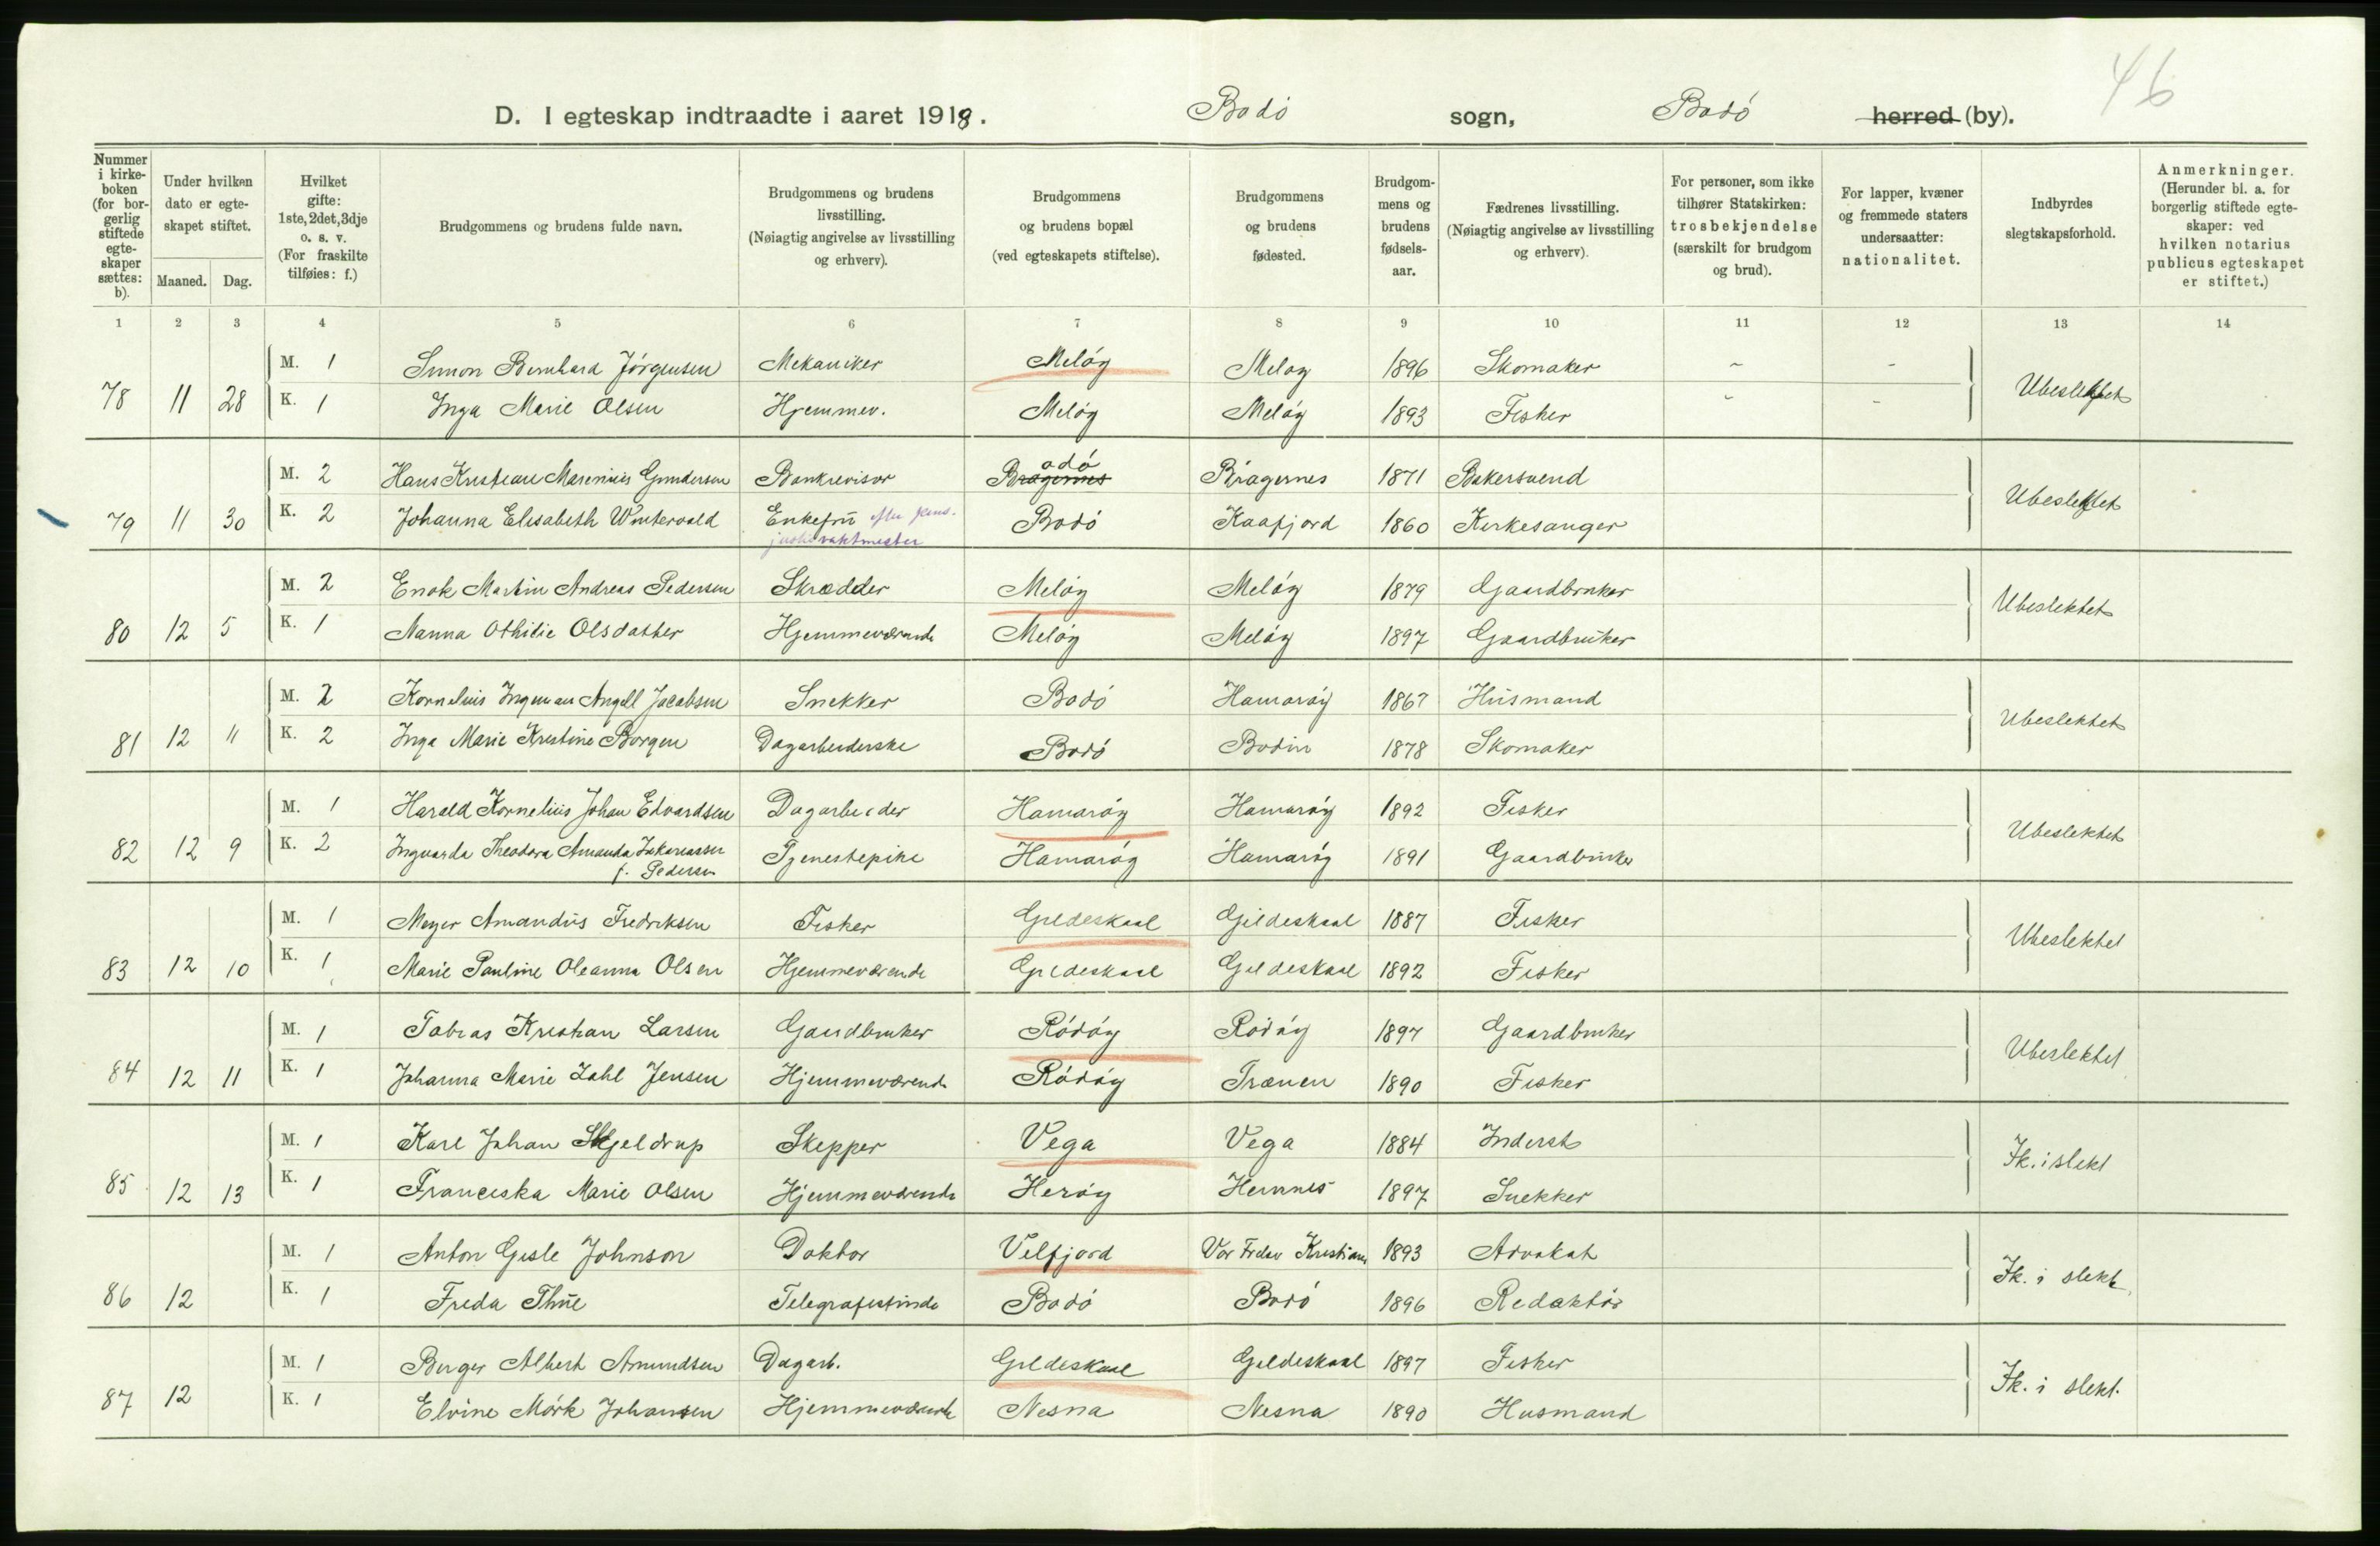 46
D. I egteskap indtraadte i aaret 1918. Bodö sogn, Bodö herred (by).
Nummer i kirkeboken (for borgerlig stiftede egteskaper sættes: b).
Under hvilken dato er egteskapet stiftet.
Maaned. Dag.
Hvilket gifte: 1ste, 2det, 3dje o. s. v. (For fraskilte tilføies: f.)
Brudgommens og brudens fulde navn.
Brudgommens og brudens livsstilling. (Nøiagtig angivelse av livsstilling og erhverv).
Brudgommens og brudens bopæl (ved egteskapets stiftelse).
Brudgommens og brudens fødested.
Brudgommens og brudens fødselsaar.
Fædrenes livsstilling. (Nøiagtig angivelse av livsstilling og erhverv).
For personer, som ikke tilhører Statskirken: trosbekjendelse (særskilt for brudgom og brud).
For lapper, kvæner og fremmede staters undersaatter: nationalitet.
Indbyrdes slegtskapsforhold.
Anmerkninger. (Herunder bl. a. for borgerlig stiftede egteskaper: ved hvilken notarius publicus egteskapet er stiftet.)
1 2 3 4 5 6 7 8 9 10 11 12 13 14
M. 1 Simon Bernhard Jörgensen Mekaniker Melöy Melöy 1896 Skomaker - -
78 11 28 K. 1 Inga Marie Olsen Hjemmev. Melöy Melöy 1893 Fisker - - Ubeslektet
M. 2 Hans Kristian Marenius Gundersen Bankrevisor Bragernes odö Bragernes 1871 Bakersvend
79 11 30 K. 2 Johanna Elisabeth Wintervold Enkefru efter pens. Bodö Kaafjord 1860 Kirkesanger Ubeslektet
justisvaktmester
M. 2 Enok Martin Andreas Pedersen Skrædder Melöy Melöy 1879 Gaardbruker
80 12 5 K. 1 Nanna Othilie Olsdatter Hjemmeværende Melöy Melöy 1897 Gaardbruker Ubeslektet
M. 2 Kornelius Ingeman Angell Jacobsen Snekker Bodö Hamaröy 1867 Husmand
81 12 11 K. 2 Inga Marie Kristine Borgen Dagarbeiderske Bodö Bodin 1878 Skomaker Ubeslektet
M. 1 Harald Kornelius Johan Edvardsen Dagarbeider Hamaröy Hamaröy 1892 Fisker
82 12 9 K. 2 Ingvarda Theodora Amanda Zakariassen Tjenestepike Hamaröy Hamaröy 1891 Gaardbruker Ubeslektet
f. Pedersen
M. 1 Meyer Amandus Fredriksen Fisker Gildeskaal Gildeskaal 1887 Fisker
83 12 10 K. 1 Marie Pauline Oleanna Olsen Hjemmeværende Gildeskaal Gildeskaal 1892 Fisker Ubeslektet
M. 1 Tobias Kristian Larsen Gaardbruker Rödöy Rödöy 1897 Gaardbruker
84 12 11 K. 1 Johanna Marie Zahl Jensen Hjemmeværende Rödöy Trænen 1890 Fisker Ubeslektet
M. 1 Karl Johan Skjeldrup Skipper Vega Vega 1884 Inderst
85 12 13 K. 1 Franciska Marie Olsen Hjemmeværende Heröy Hemnes 1897 Snekker Ik. i slekt
M. 1 Anton Gisle Johnson Doktor Velfjord Vor Frelser Kristiania 1893 Advokat
86 12 K. 1 Freda Thue Telegrafistinde Bodö Bodö 1896 Redaktör Ik. i slekt
M. 1 Birger Albert Amundsen Dagarb. Gildeskaal Gildeskaal 1897 Fisker
87 12 K. 1 Elvine Mörk Johansen Hjemmeværende Nesna Nesna 1890 Husmand Ik. i slekt.